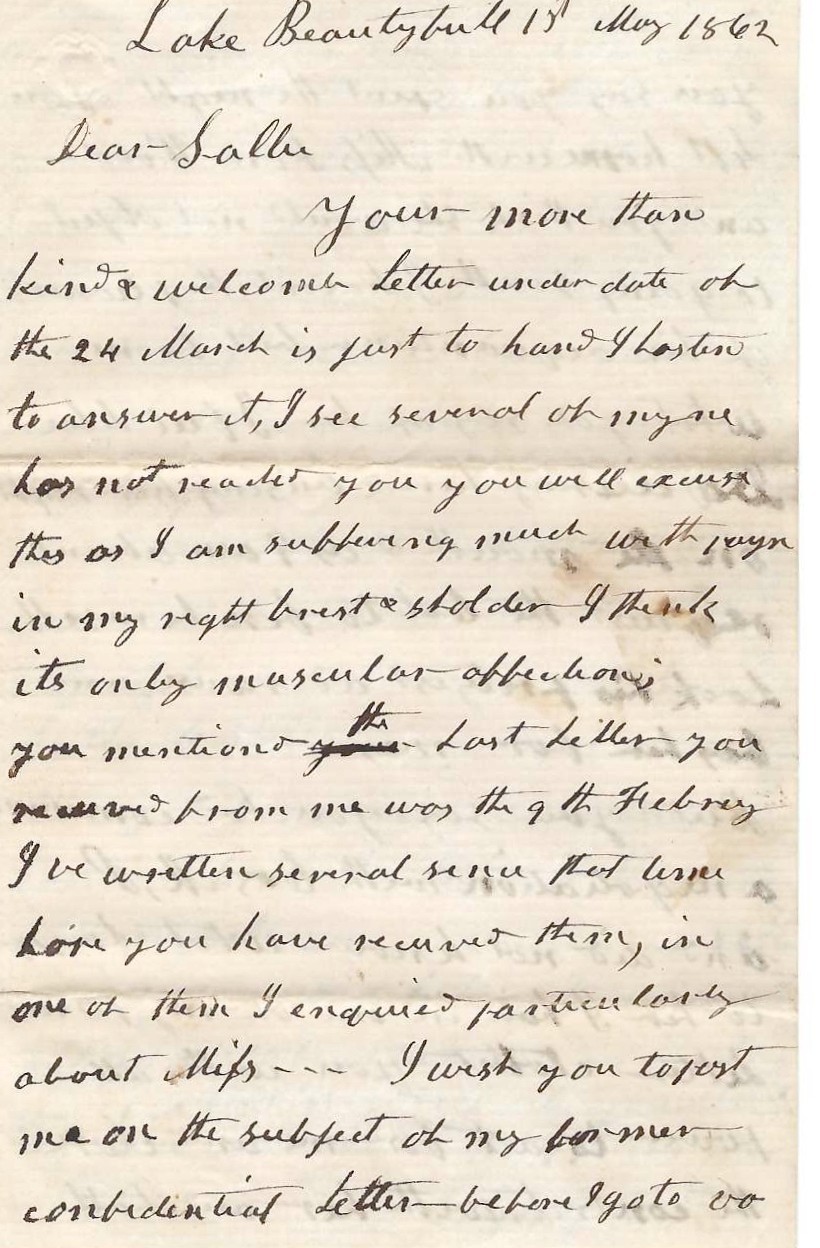 Lake Beautyfull 1st May 1862
Dear Sallie
Your more than
kind & welcome Letter under date of
the 24 March is just to hand I hasten
to answer it, I see several of myne
has not reached you you will excuse
this as I am suffering much with payn
in my right brest & sholder I think
its only muscular affections
you mentiond the Last Letter you
received from me was the 9th Febrey
I've written several since that time
hope you have received them, in
one of them I enquired particularly
about Miss --- I wish you to post
me on the subject of my former
confidential Letter before I go to